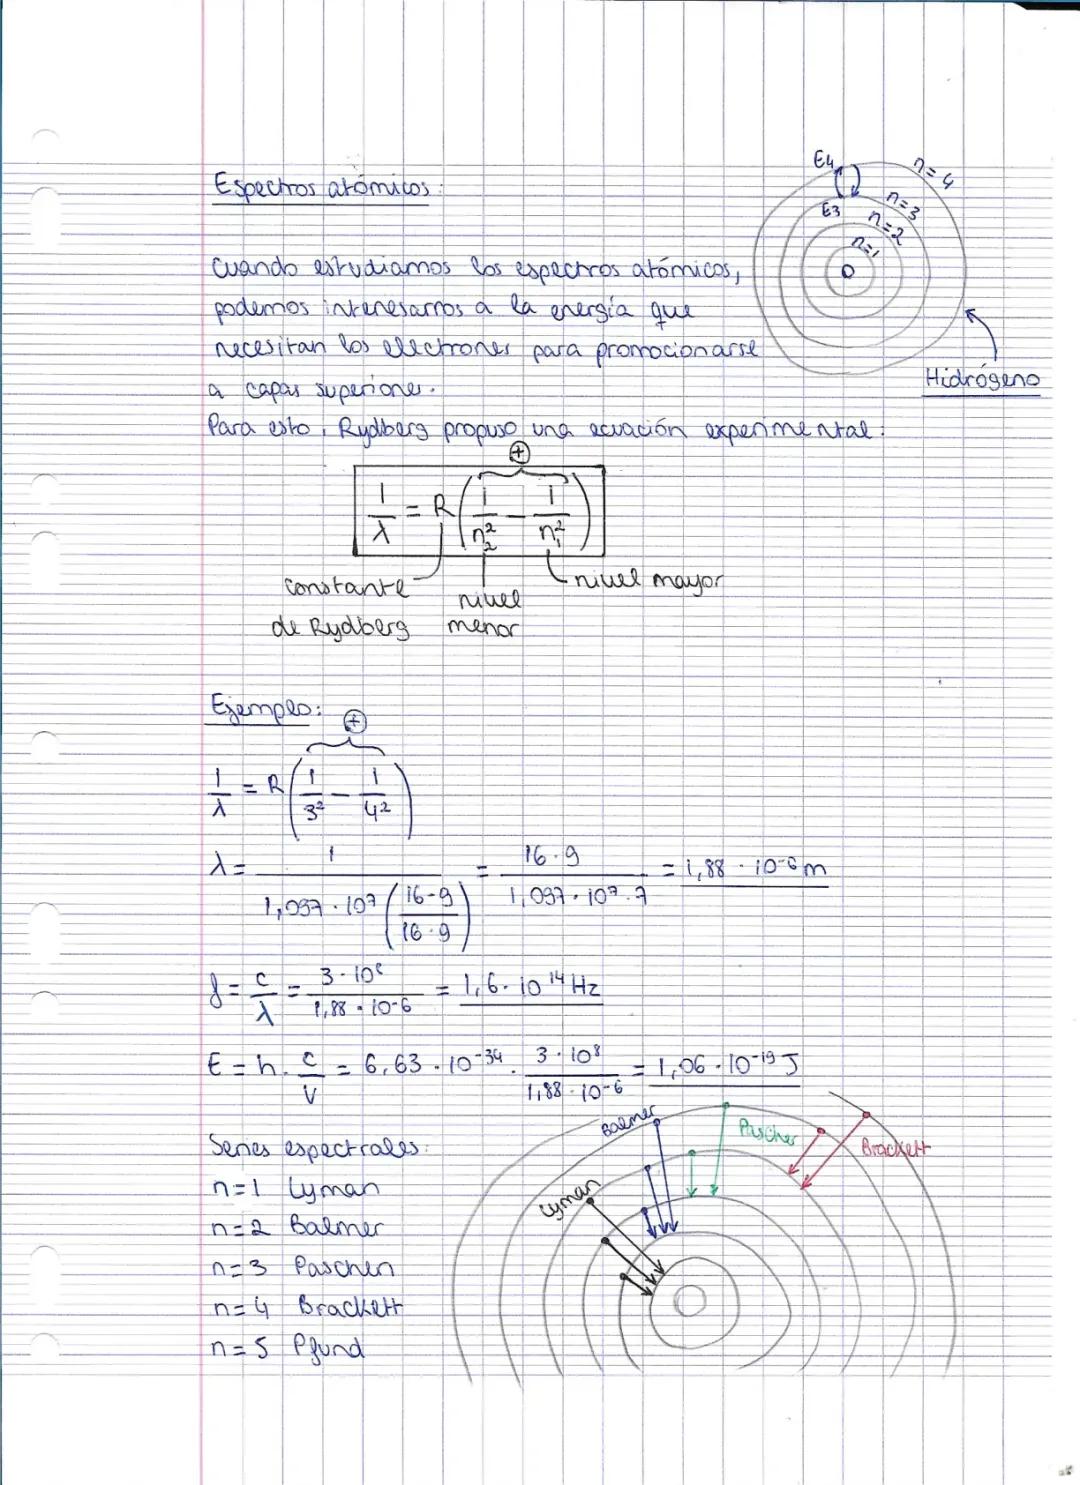 Espectros atómicos:
E4
n=4
E3
n=3
n=2
n=1
Cuando estudiamos los espectros atómicos,
podemos interesarnos a la energía que
necesitan los electrones para promocionarse
a capas superiores.
Hidrógeno
Para esto, Rydberg propuso una ecuación experimental:
+
1/λ = R (1/n₂² - 1/n₁²)
constante de Rydberg
nivel menor
nivel mayor
Ejemplo:
+
1/λ = R (1/3² - 1/4²)
λ = 1 / (1,097 · 10⁷ ((16-9)/(16·9))) = 16·9 / (1,097 · 10⁷ · 7) = 1,88 · 10⁻⁶ m
f = c/λ = 3·10⁸ / (1,88 · 10⁻⁶) = 1,6 · 10¹⁴ Hz
E = h · c/V = 6,63 · 10⁻³⁴ · 3·10⁸ / (1,88 · 10⁻⁶) = 1,06 · 10⁻¹⁹ J
Series espectrales:
n=1 Lyman
n=2 Balmer
n=3 Paschen
n=4 Brackett
n=5 Pfund
Lyman
Balmer
Paschen
Brackett